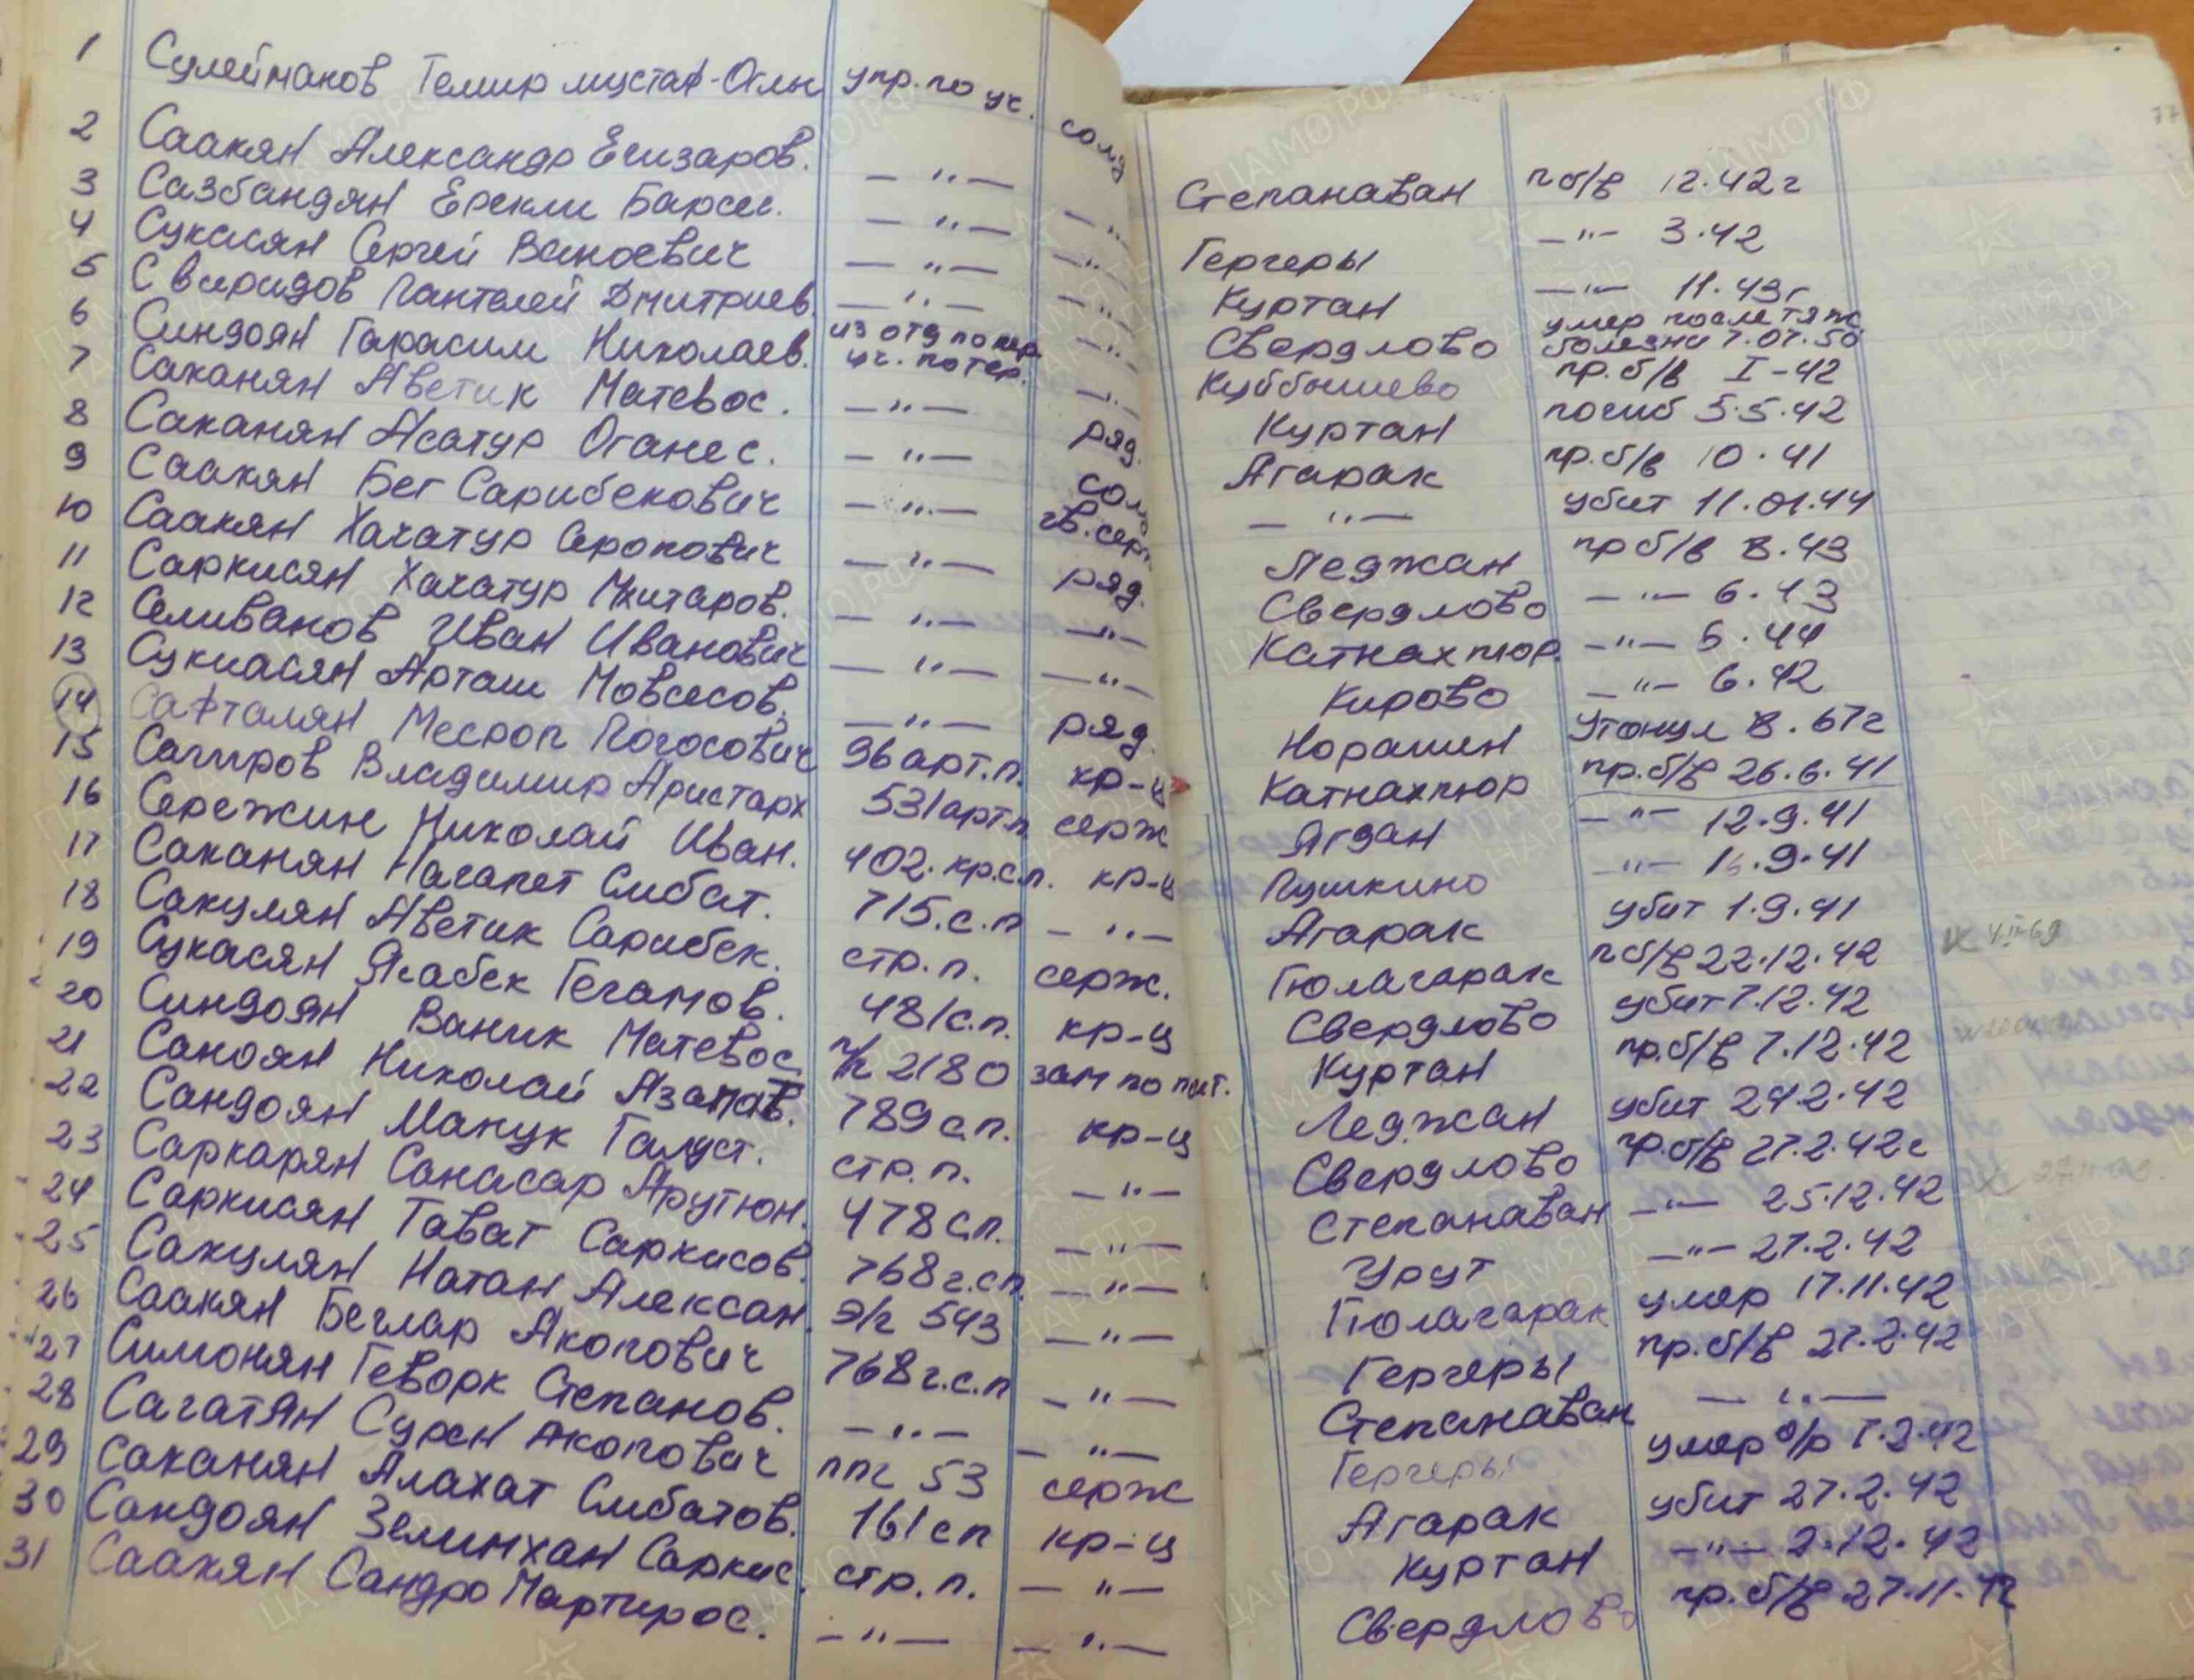 1 Сулейманов Темир мустаф-Оглы упр. по уч. солд Степанаван п б/в 12.42 г
2 Саакян Александр Егизаров. — " — — " — Гергеры — " — 3.42
3 Сазбандян Ерекли Барсег. — " — — " — Куртан — " — 11.43 г
4 Сукасян Сергей Ваноевич — " — — " — Свердлово умер после тяж. болезни 7.07.50
5 Свиридов Пантелей Дмитриев. — " — — " — Куйбышево пр. б/в I-42
6 Синдоян Гарасим Николаев. из отд по пер. уч. потер. — " — Куртан погиб 5.5.42
7 Саканян Аветик Матевос. — " — ряд. Агарак пр. б/в 10.41
8 Саканян Асатур Оганес. — " — солд — " — убит 11.01.44
9 Саакян Бег Сарибекович — " — гв. серж Леджан пр б/в 8.43
10 Саакян Хачатур Серопович — " — ряд. Свердлово — " — 6.43
11 Саркисян Хачатур Мхитаров. — " — — " — Катнахпюр. — " — 5.44
12 Селиванов Иван Иванович — " — — " — Кирово — " — 6.42
13 Сукиасян Арташ Мовсесов. — " — ряд. Норашен Утонул 8.67 г
14 Сафталян Месроп Погосович 96 арт. п. кр-ц Катнахпюр пр. б/в 26.6.41
15 Сагиров Владимир Аристарх 531 арт п. серж Ягдан — " — 12.9.41
16 Сережкин Николай Иван. 402. кр. с. п. кр-ц Пушкино — " — 16.9.41
17 Саканян Нагапет Смбат. 715. с. п — " — Агарак убит 1.9.41
18 Сакулян Аветик Сарибек. стр. п. серж. Гюлагарак п б/в 22.12.42
19 Сукасян Ягабек Гегамов. 481 с. п. кр-ц Свердлово убит 7.12.42
20 Синдоян Ваник Матевос п/п 2180 зам по полит. Куртан пр. б/в 7.12.42
21 Саноян Николай Азапав. 789 с. п. кр-ц Леджан убит 24.2.42
22 Сандоян Манук Галуст. стр. п. — " — Свердлово пр. б/в 27.2.42 г
23 Саркарян Санасар Арутюн. 478 с. п. — " — Степанаван — " — 25.12.42
24 Саркисян Тават Саркисов. 768 г. сп. — " — Урут — " — 27.2.42
25 Сакулян Натан Алексан. э/г 543 — " — Гюлагарак умер 17.11.42
26 Саакян Беглар Акопович 768 г. с. п — " — Гергеры пр. б/в 27.2.42
27 Симонян Геворк Степанов. — " — — " — Степанаван — " —
28 Сагатян Сурен Акопович ппг 53 серж Гергеры умер о/р 7.2.42
29 Саканян Алахат Смбатов. 161 сп кр-ц Агарак убит 27.2.42
30 Сандоян Зелимхан Саркис. стр. п. — " — Куртан — " — 2.12.42
31 Саакян Сандро Мартирос. — " — — " — Свердлово пр. б/в 27.11.42